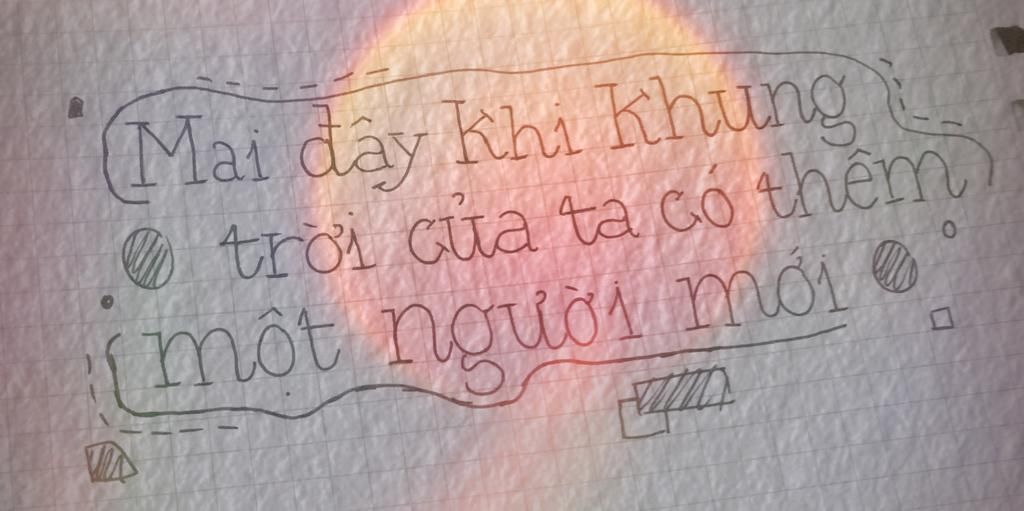 Mai đây khi khung
trời của ta có thêm
một người mới